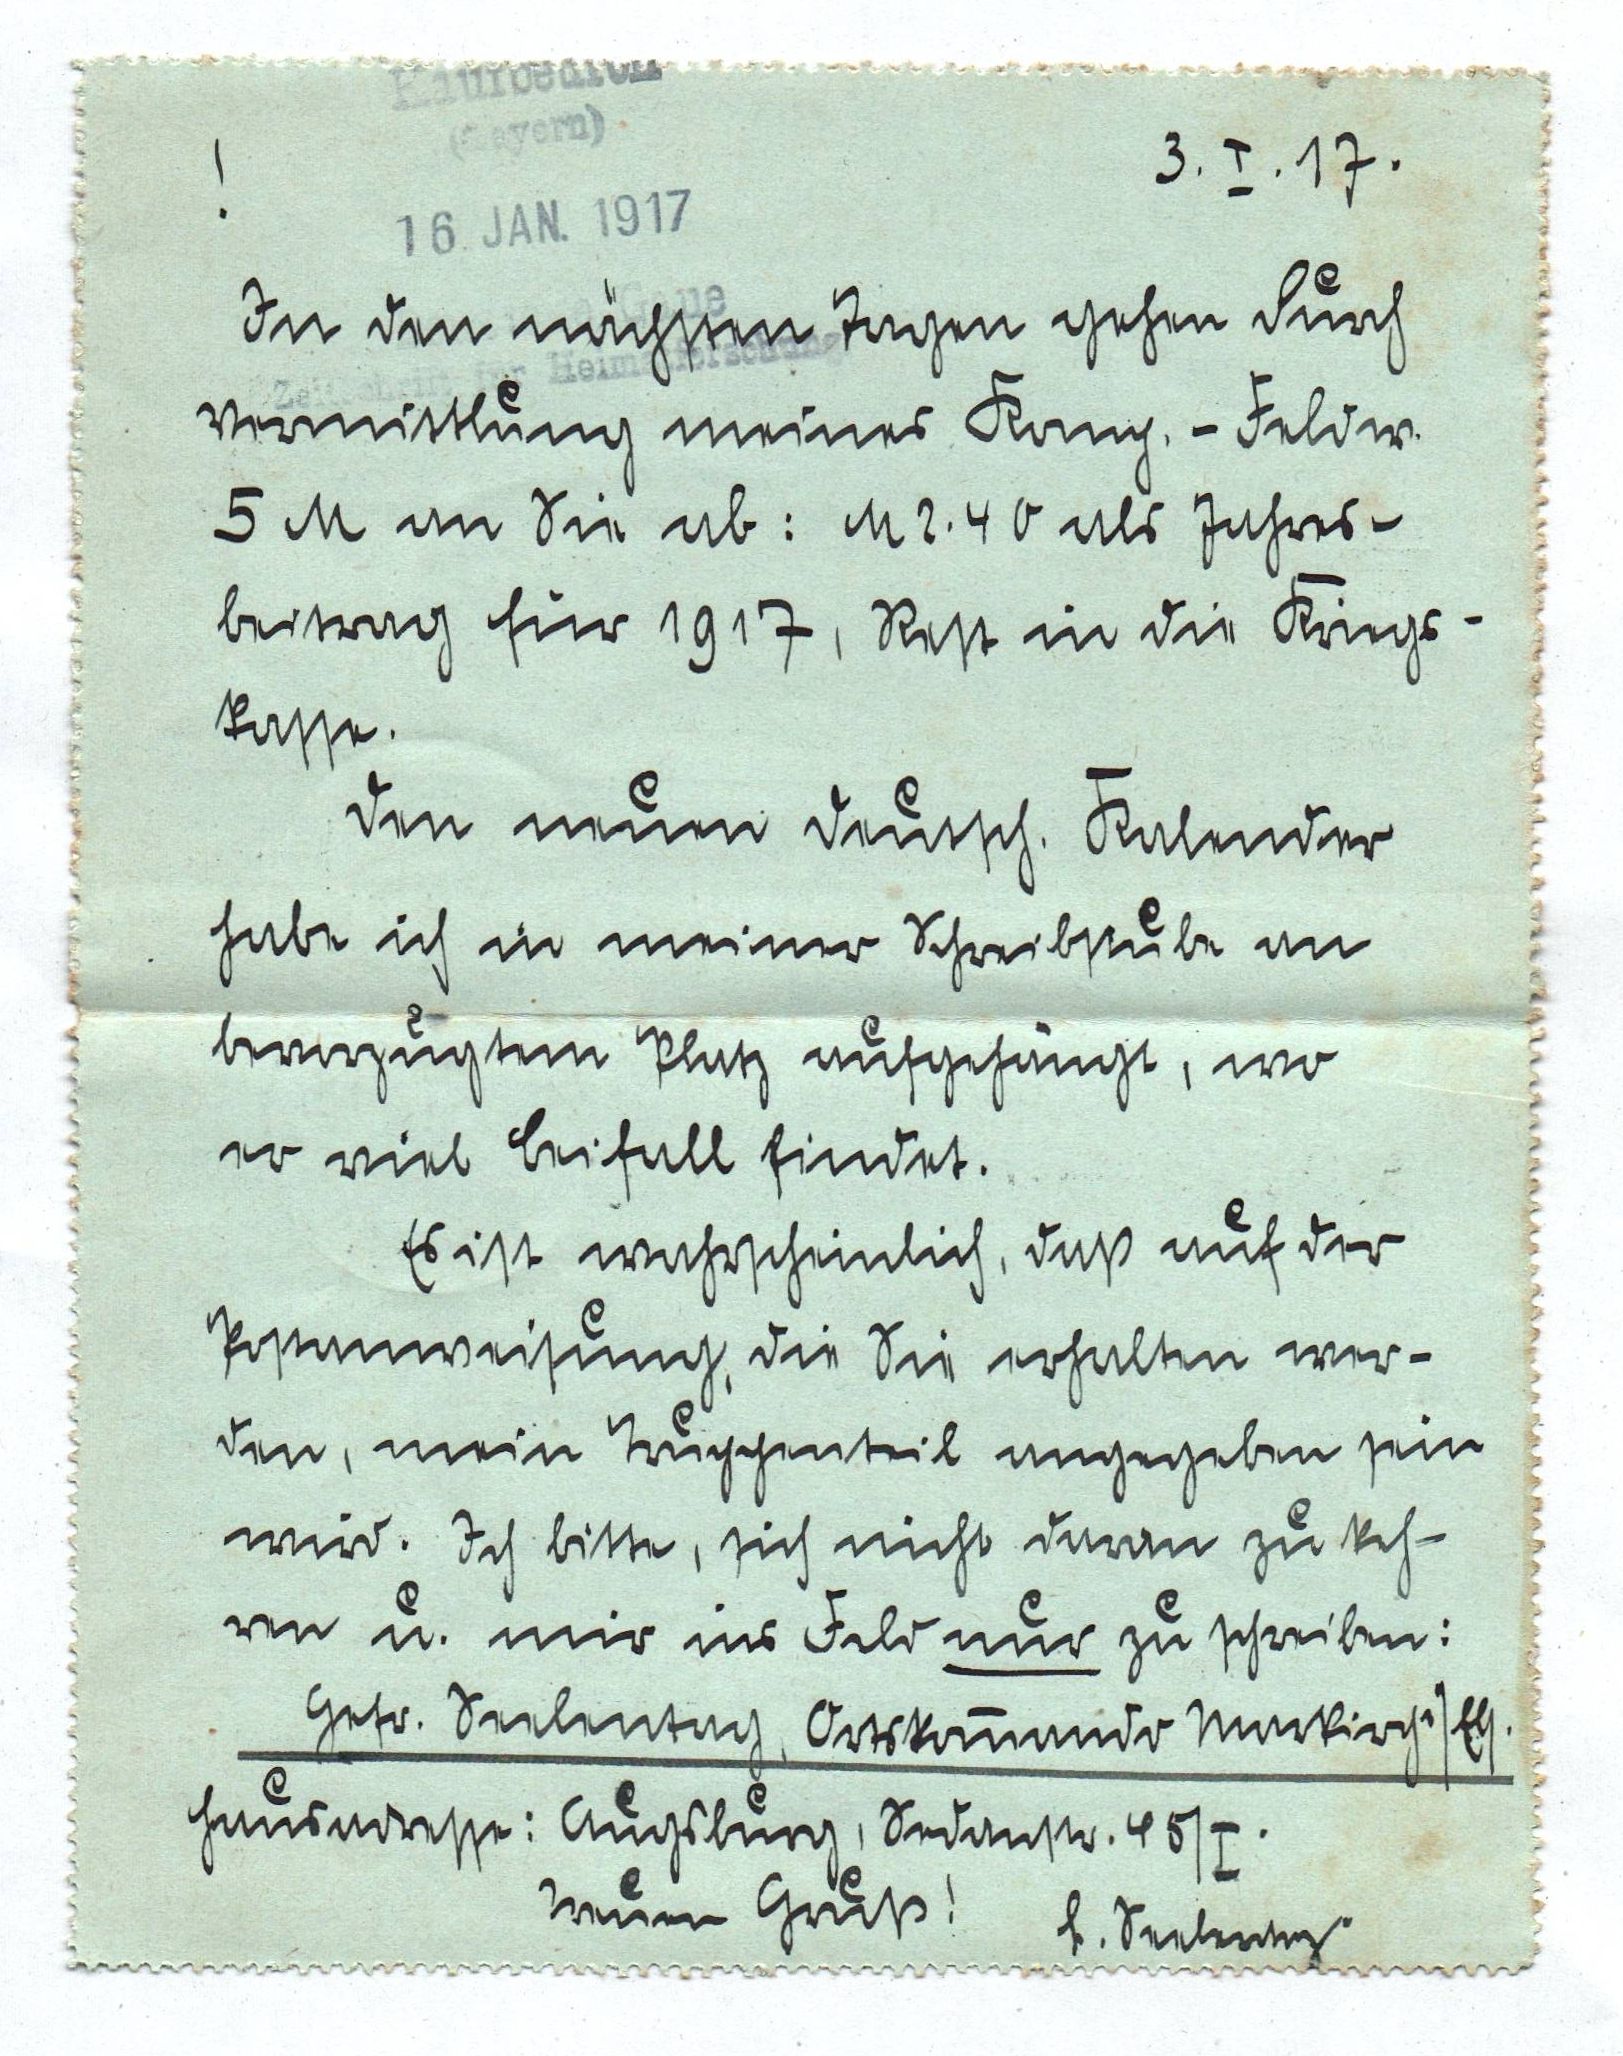 Kaufbeuren
(Bayern)
! 3. I. 17.
16. JAN. 1917
In den nächsten Tagen gehen durch
Zeitschrift für Heimatforschung
Vermittlung meines Komp.-Feldw.
5 M an Sie ab: M 2.40 als Jahres-
beitrag für 1917, Rest in die Kriegs-
kasse.
Den neuen deutsch. Kalender
habe ich in meiner Schreibstube an
bevorzugtem Platz aufgehängt, wo
er viel Beifall findet.
Es ist wahrscheinlich, daß auf der
Postanweisung, die Sie erhalten wer-
den, mein Truppenteil angegeben sein
wird. Ich bitte, sich nicht daran zu keh-
ren u. mir ins Feld nur zu schreiben:
Gefr. Seelentag, Ortskom̅ando Markirch i/Els.
Hausadresse: Augsburg, Sedanstr. 45/I.
Treuen Gruß! Seelentag